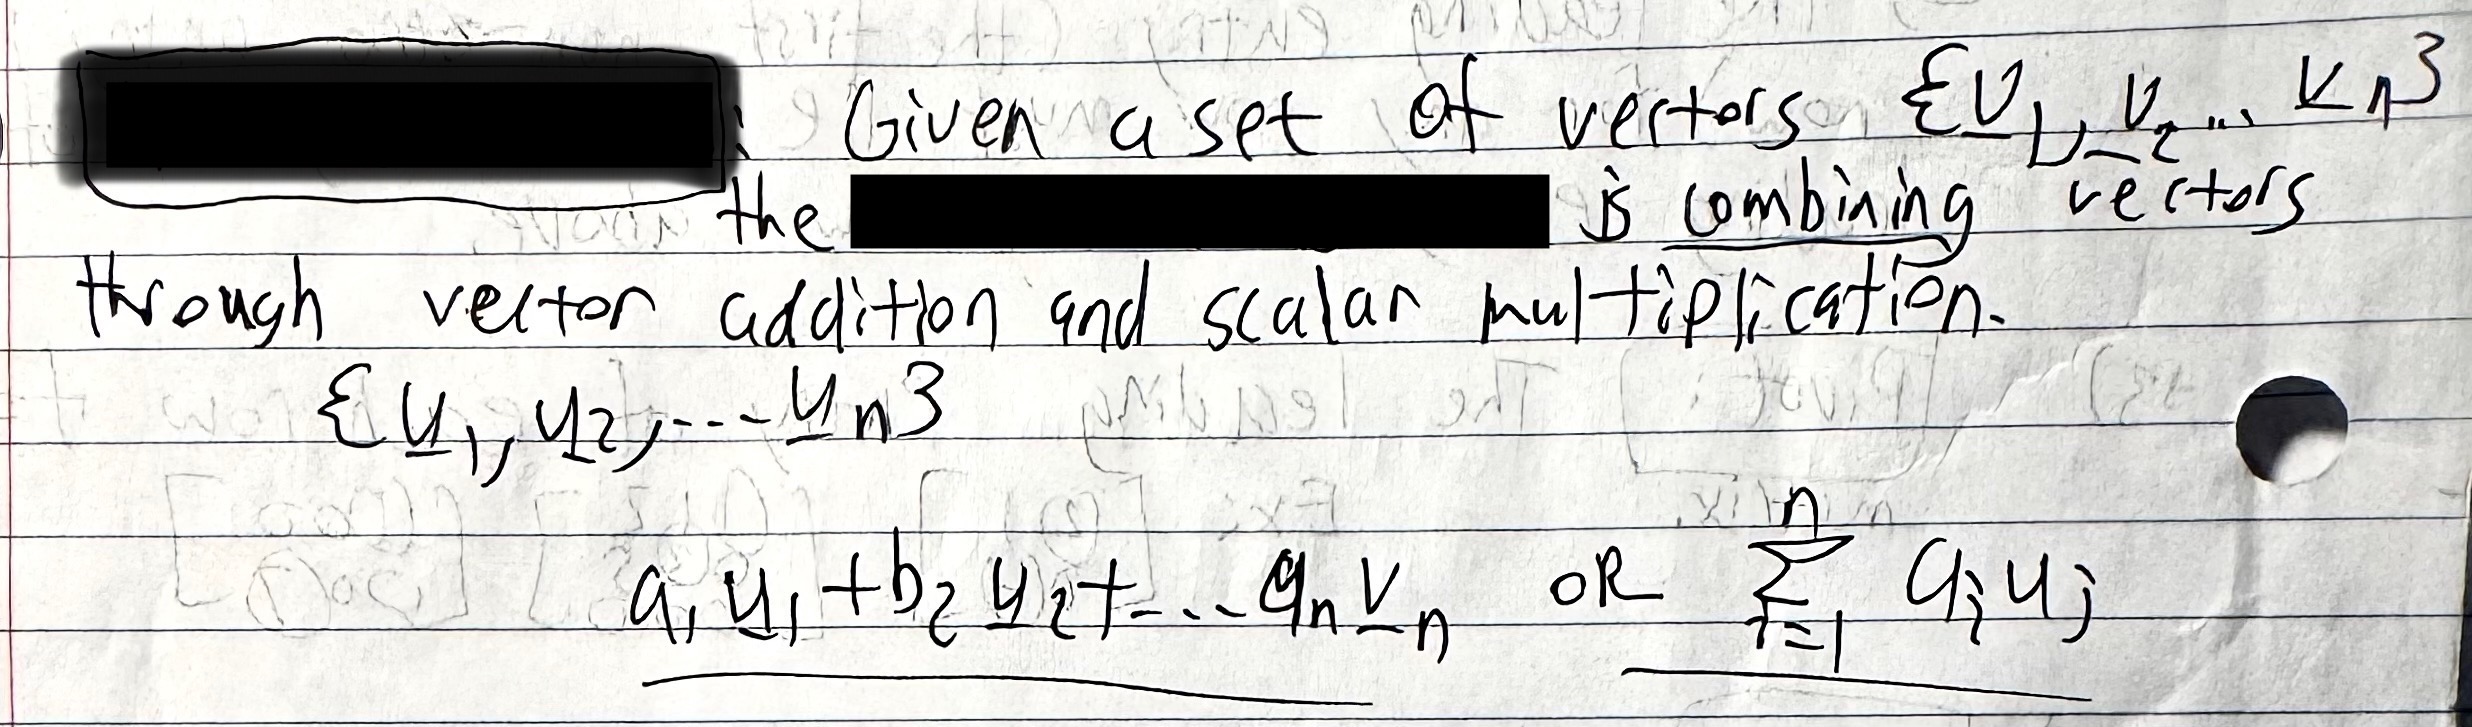 : Given a set of vectors {v₁, v₂... vₙ}
the is combining vectors
through vector addition and scalar multiplication.
{u₁, u₂, .... uₙ}
a₁u₁ + b₂u₂ + .... aₙvₙ OR n∑i=1 aᵢuⱼ